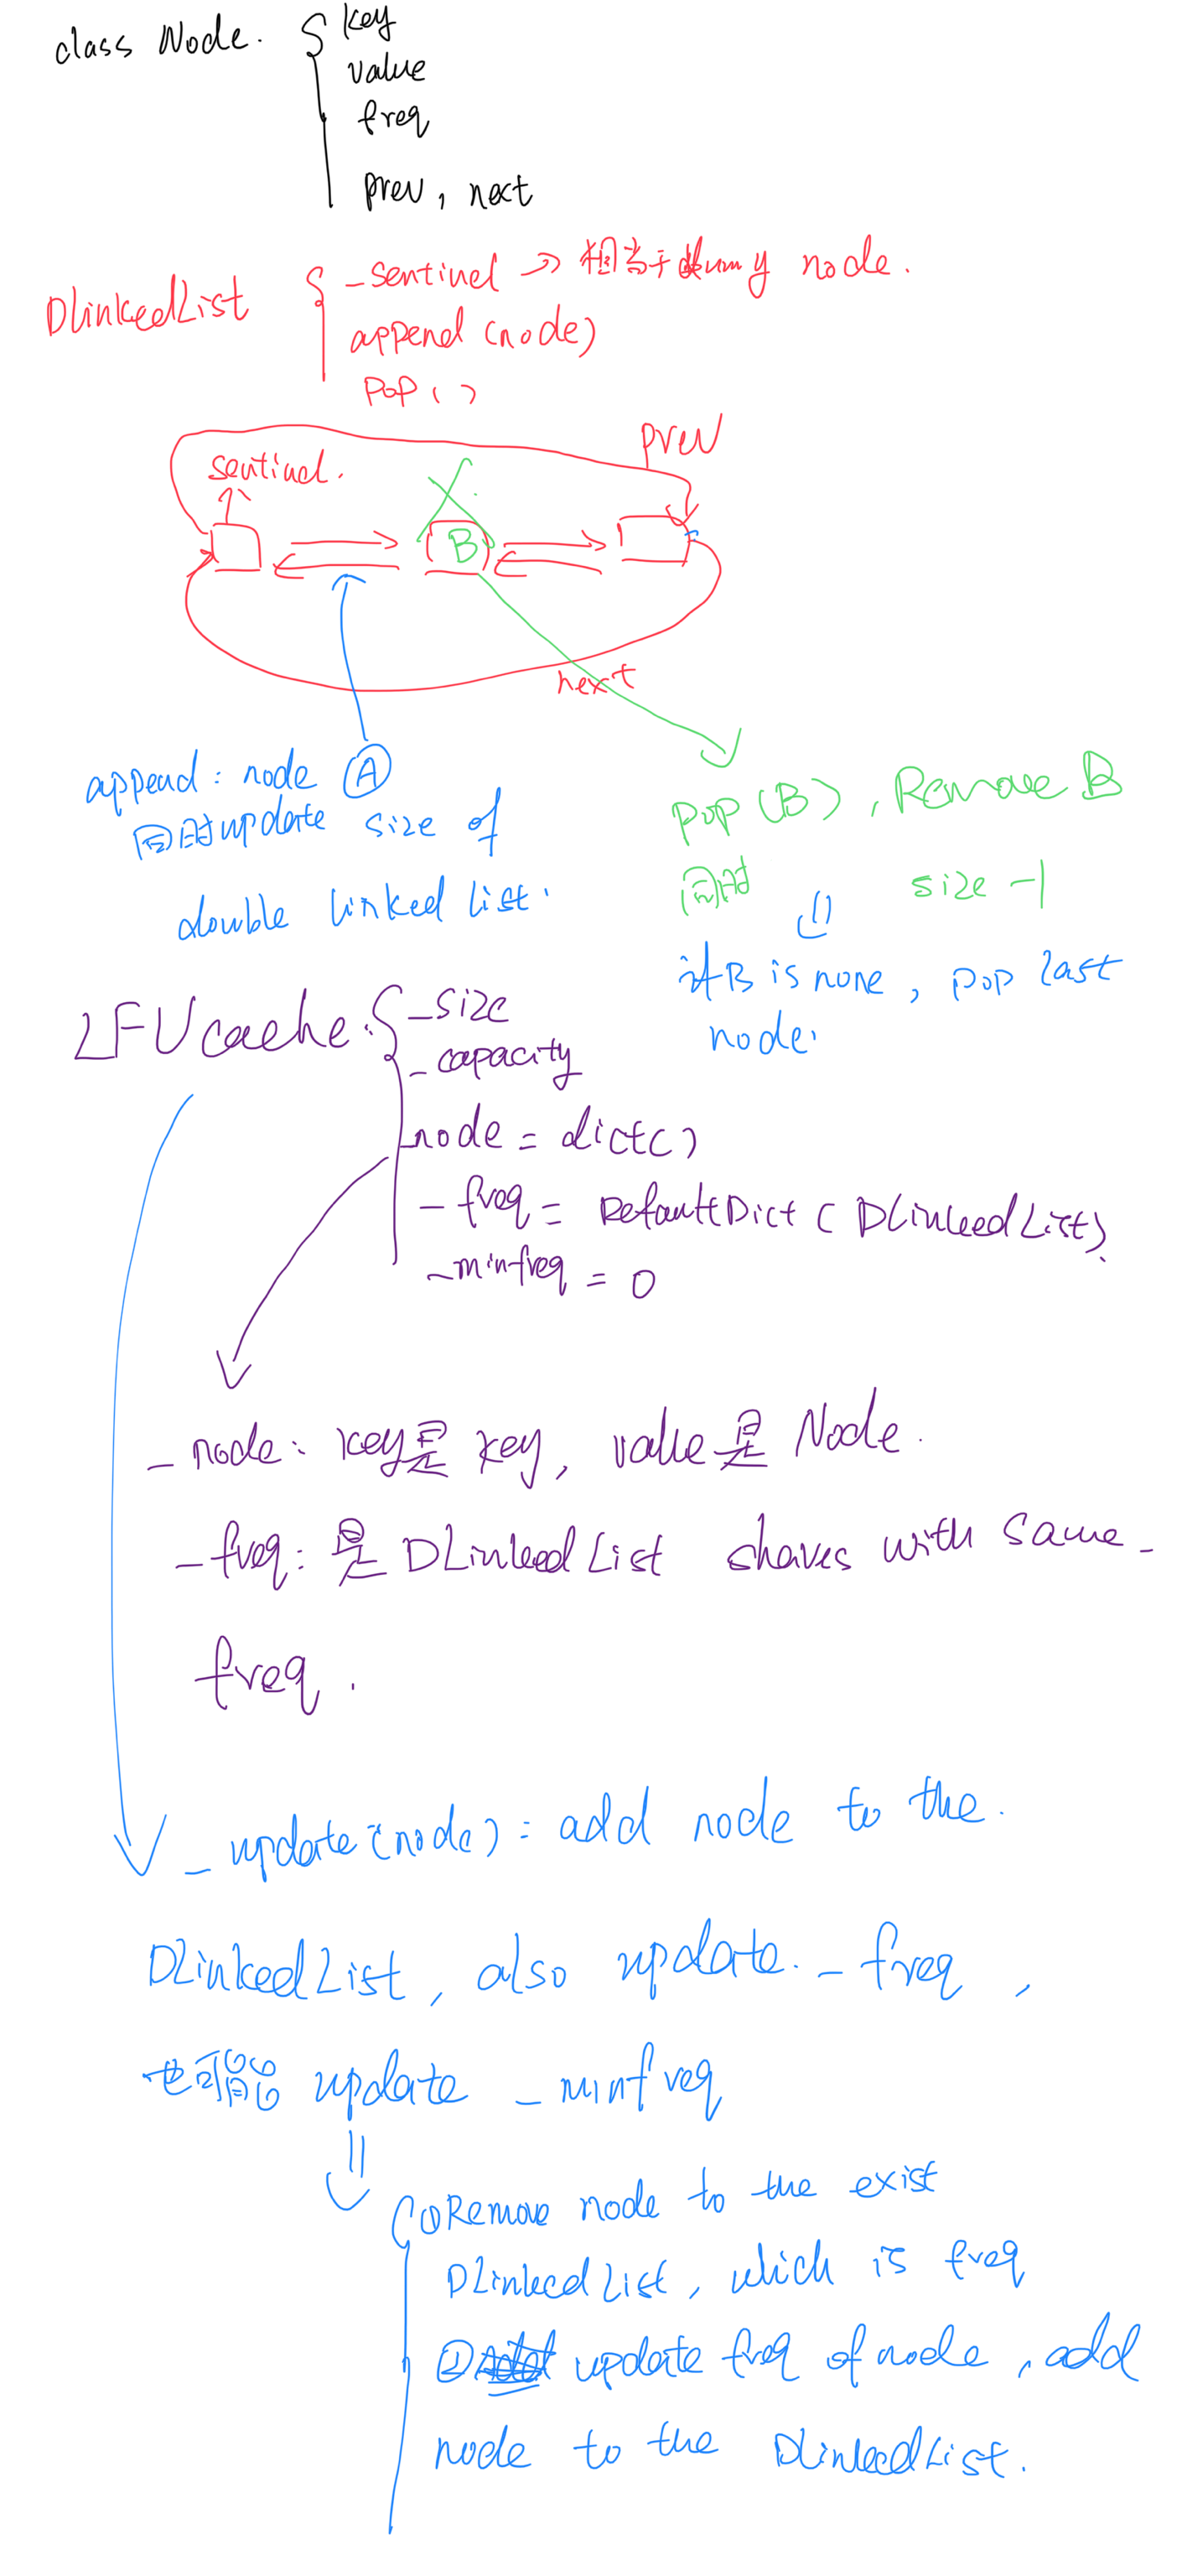 class Node. { key
value
freq
prev, next
DlinkedList { _sentinel → 相当于dummy node.
append (node)
pop ( )
prev
sentinel.
B
next
append: node Ⓐ
同时update size of
double linked list.
pop (B), Remove B
同时 size -1
if B is none, pop last
node.
LFUcache: { _size
_capacity
_node = dict()
_freq = DefaultDict ( DLinkedList)
_minfreq = 0
_node: key是key, value是 Node.
_freq: 是 DLinkedList shaves with same_
freq.
_update(node): add node to the.
DLinkedList, also update. _freq,
也可能 update _minfreq
① Remove node to the exist
DLinkedList, which is freq
② update freq of node, add
node to the DLinkedList.